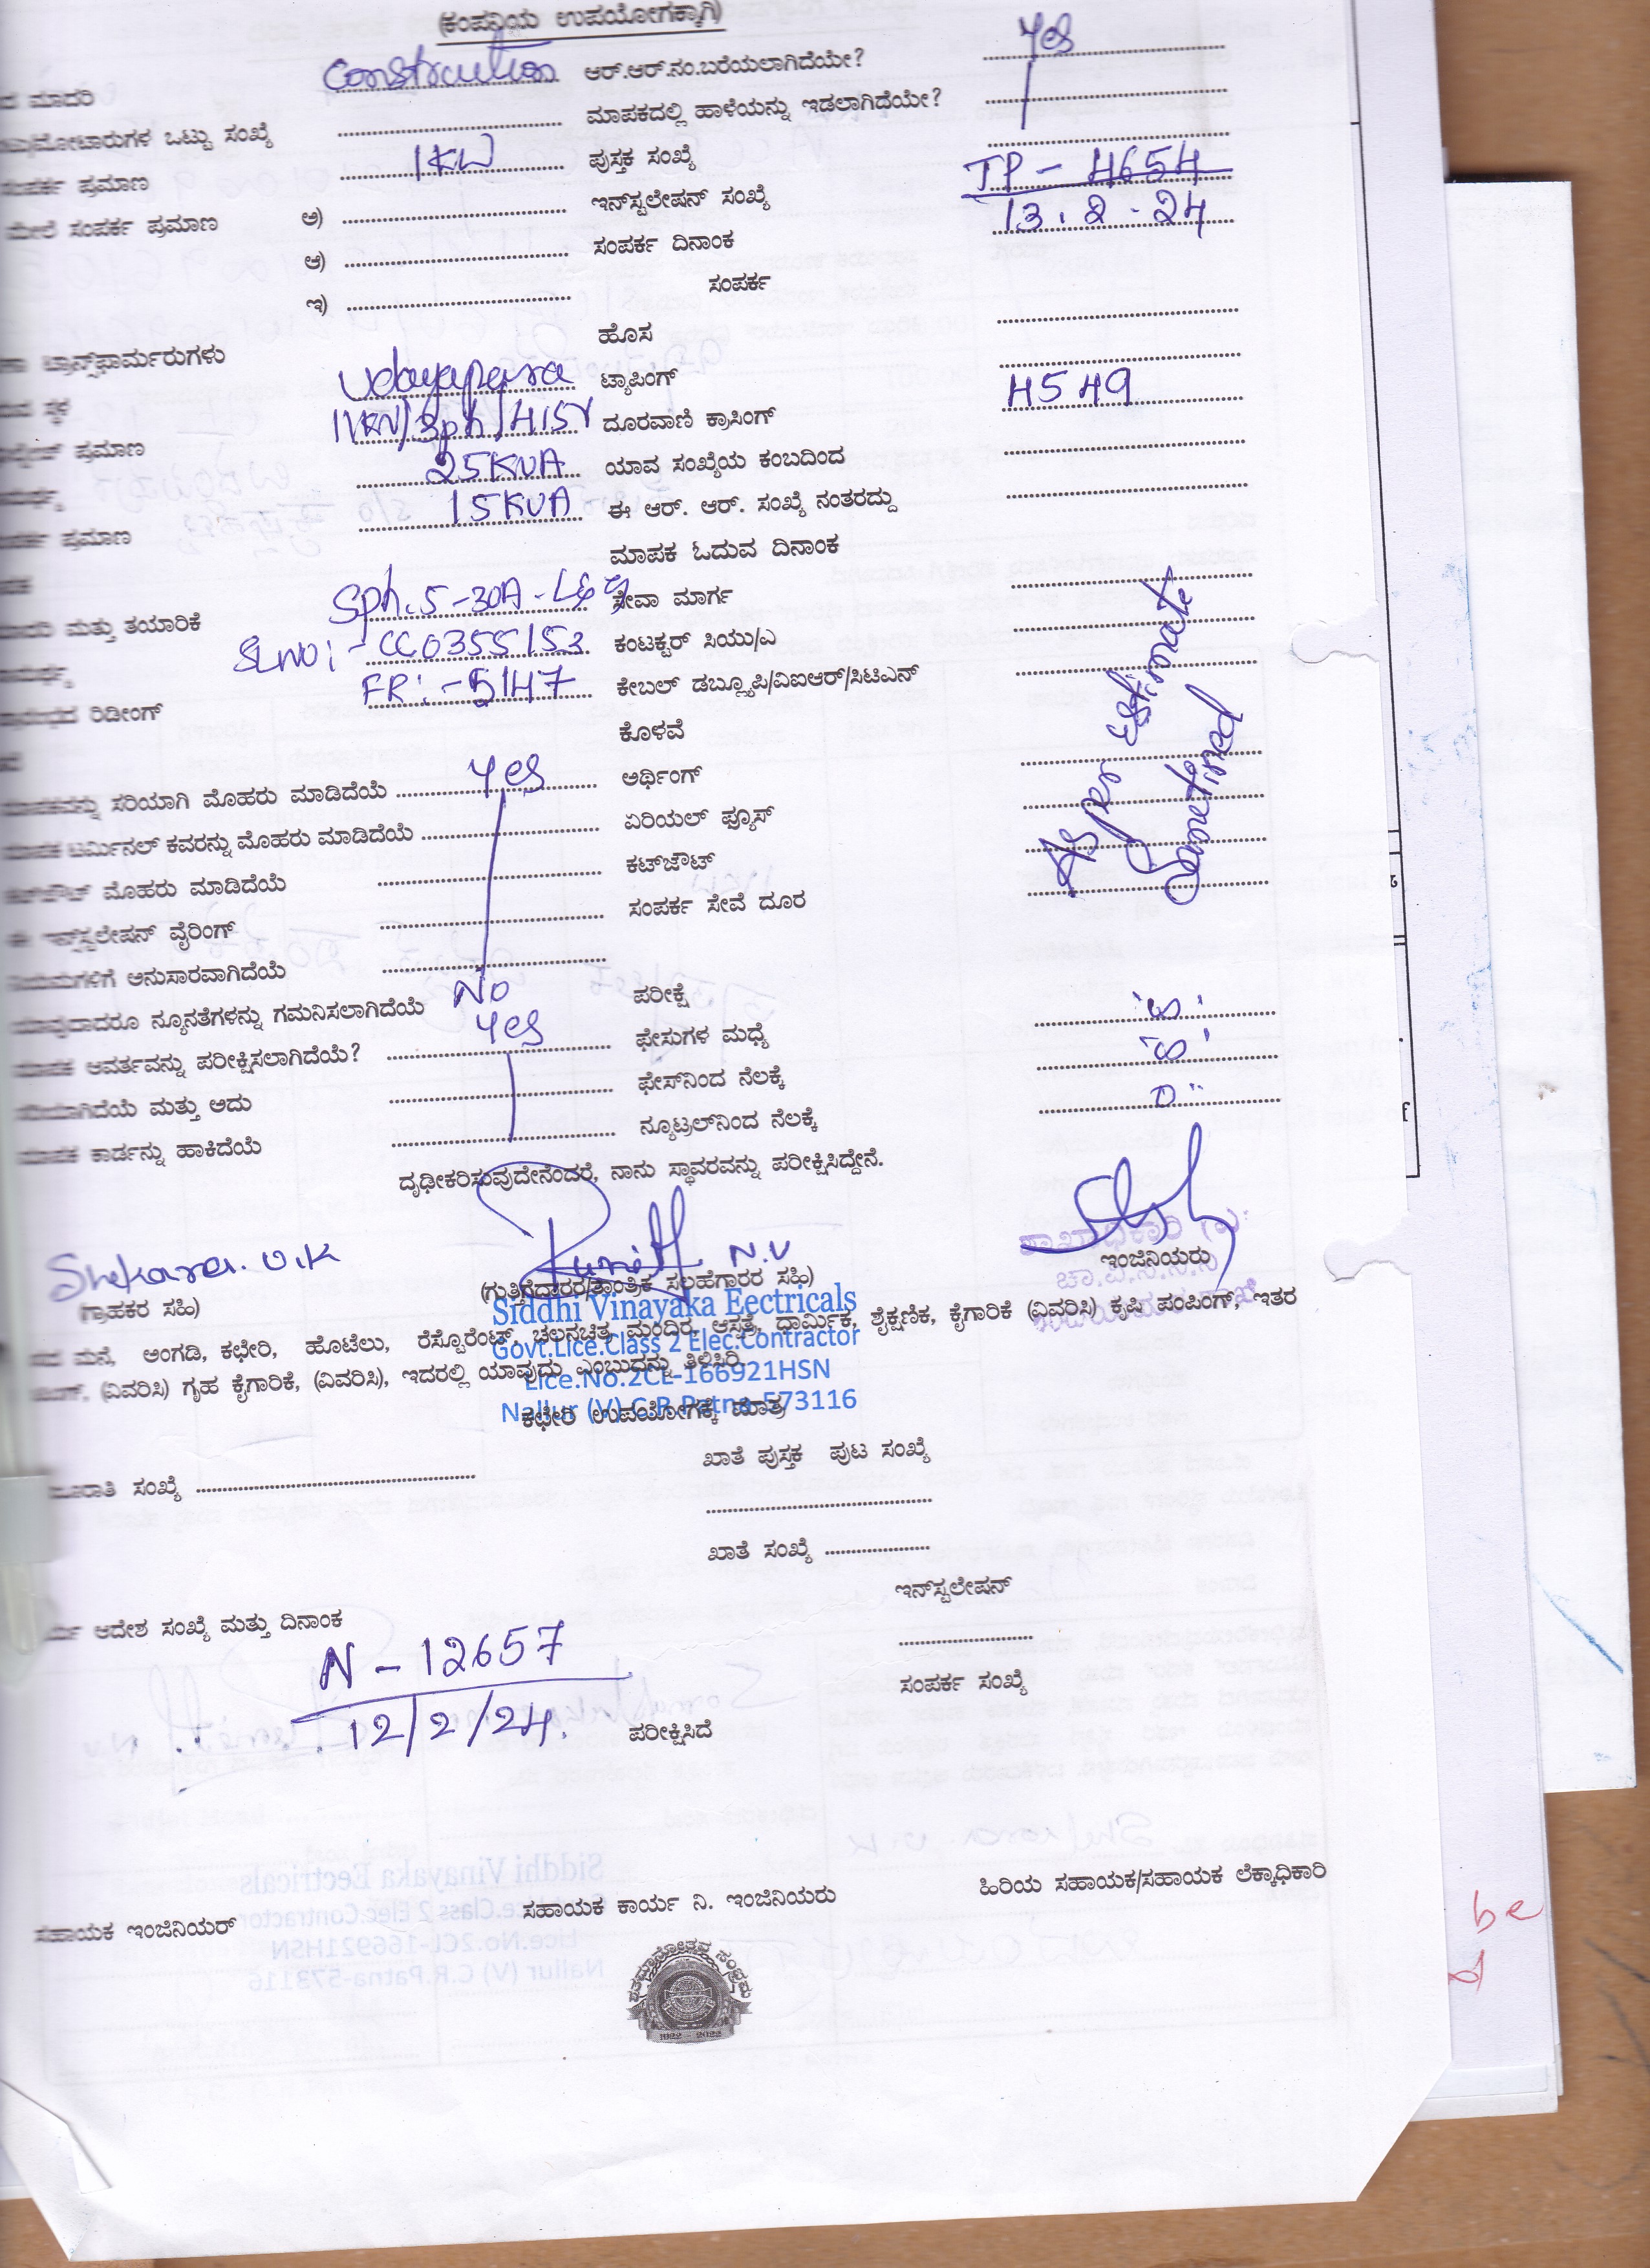 (ಕಂಪನಿಯ ಉಪಯೋಗಕ್ಕಾಗಿ)
ದ ಮಾದರಿ Construction ಆರ್.ಆರ್.ನಂ.ಬರೆಯಲಾಗಿದೆಯೇ? Yes
ಮೋಟಾರುಗಳ ಒಟ್ಟು ಸಂಖ್ಯೆ ಮಾಪಕದಲ್ಲಿ ಹಾಳೆಯನ್ನು ಇಡಲಾಗಿದೆಯೇ?
ಸಂಪರ್ಕ ಪ್ರಮಾಣ 1KW ಪುಸ್ತಕ ಸಂಖ್ಯೆ
ಮೇಲೆ ಸಂಪರ್ಕ ಪ್ರಮಾಣ ಅ) ಇನ್‌ಸ್ಟಲೇಷನ್ ಸಂಖ್ಯೆ TP - 4654
ಆ) ಸಂಪರ್ಕ ದಿನಾಂಕ 13.2.24
ಇ) ಸಂಪರ್ಕ
ಟ್ರಾನ್ಸ್‌ಫಾರ್ಮರುಗಳು ಹೊಸ
ಸ್ಥಳ Udayapura ಟ್ಯಾಪಿಂಗ್
ಪ್ರಮಾಣ 11KV/3ph/415V ದೂರವಾಣಿ ಕ್ರಾಸಿಂಗ್ 4549
25KVA ಯಾವ ಸಂಖ್ಯೆಯ ಕಂಬದಿಂದ
ಪ್ರಮಾಣ 15KVA ಈ ಆರ್. ಆರ್. ಸಂಖ್ಯೆ ನಂತರದ್ದು
ಮಾಪಕ ಓದುವ ದಿನಾಂಕ
ಮತ್ತು ತಯಾರಿಕೆ Sph.5-30A-L&G ಸೇವಾ ಮಾರ್ಗ
SLNO:- CC0355153 ಕಂಟಕ್ಟರ್ ಸಿಯು/ಎ
ರಿಡೀಂಗ್ FR:-5147 ಕೇಬಲ್ ಡಬ್ಲ್ಯೂಪಿ/ವಿಐಆರ್/ಸಿಟಿಎನ್
ಕೊಳವೆ
As per Estimate Sanctined
ಸರಿಯಾಗಿ ಮೊಹರು ಮಾಡಿದೆಯೆ Yes ಅರ್ಥಿಂಗ್
ಟರ್ಮಿನಲ್ ಕವರನ್ನು ಮೊಹರು ಮಾಡಿದೆಯೆ ಏರಿಯಲ್ ಫ್ಯೂಸ್
ಮೊಹರು ಮಾಡಿದೆಯೆ ಕಟ್‌ಜೌಟ್
ಈ ಇನ್‌ಸ್ಟಲೇಷನ್ ವೈರಿಂಗ್ ಸಂಪರ್ಕ ಸೇವೆ ದೂರ
ನಿಯಮಗಳಿಗೆ ಅನುಸಾರವಾಗಿದೆಯೆ
ಯಾವುದಾದರೂ ನ್ಯೂನತೆಗಳನ್ನು ಗಮನಿಸಲಾಗಿದೆಯೆ No ಪರೀಕ್ಷೆ
ಮಾಪಕ ಆವರ್ತವನ್ನು ಪರೀಕ್ಷಿಸಲಾಗಿದೆಯೆ? Yes ಫೇಸುಗಳ ಮಧ್ಯೆ
ಸರಿಯಾಗಿದೆಯೆ ಮತ್ತು ಅದು ಫೇಸ್‌ನಿಂದ ನೆಲಕ್ಕೆ
ಮಾಪಕ ಕಾರ್ಡನ್ನು ಹಾಕಿದೆಯೆ ನ್ಯೂಟ್ರಲ್‌ನಿಂದ ನೆಲಕ್ಕೆ
ದೃಢೀಕರಿಸುವುದೇನೆಂದರೆ, ನಾನು ಸ್ಥಾವರವನ್ನು ಪರೀಕ್ಷಿಸಿದ್ದೇನೆ.
Shekara. U.K Punith N.V
(ಗ್ರಾಹಕರ ಸಹಿ) (ಗುತ್ತಿಗೆದಾರರ/ತಾಂತ್ರಿಕ ಸಲಹೆಗಾರರ ಸಹಿ) ಇಂಜಿನಿಯರು
Siddhi Vinayaka Eectricals
ಮನೆ, ಅಂಗಡಿ, ಕಛೇರಿ, ಹೊಟೆಲು, ರೆಸ್ಟೊರೆಂಟ್, ಚಲನಚಿತ್ರ ಮಂದಿರ, ಆಸ್ಪತ್ರೆ, ಧಾರ್ಮಿಕ, ಶೈಕ್ಷಣಿಕ, ಕೈಗಾರಿಕೆ (ವಿವರಿಸಿ) ಕೃಷಿ ಪಂಪಿಂಗ್, ಇತರ
Govt.Lice.Class 2 Elec.Contractor
(ವಿವರಿಸಿ) ಗೃಹ ಕೈಗಾರಿಕೆ, (ವಿವರಿಸಿ), ಇದರಲ್ಲಿ ಯಾವುದು ಎಂಬುದನ್ನು ತಿಳಿಸಿರಿ.
Lice.No.2CL-166921HSN
Nallur (V) C.R.Patna-573116
ಕಛೇರಿ ಉಪಯೋಗಕ್ಕೆ ಮಾತ್ರ
ಸಂಖ್ಯೆ ಖಾತೆ ಪುಸ್ತಕ ಪುಟ ಸಂಖ್ಯೆ
ಖಾತೆ ಸಂಖ್ಯೆ
ಇನ್‌ಸ್ಟಲೇಷನ್
ಆದೇಶ ಸಂಖ್ಯೆ ಮತ್ತು ದಿನಾಂಕ
N - 12657
ಸಂಪರ್ಕ ಸಂಖ್ಯೆ
12/2/24. ಪರೀಕ್ಷಿಸಿದೆ
ಸಹಾಯಕ ಇಂಜಿನಿಯರ್ ಸಹಾಯಕ ಕಾರ್ಯ ನಿ. ಇಂಜಿನಿಯರು ಹಿರಿಯ ಸಹಾಯಕ/ಸಹಾಯಕ ಲೆಕ್ಕಾಧಿಕಾರಿ
be
1922 - 2022